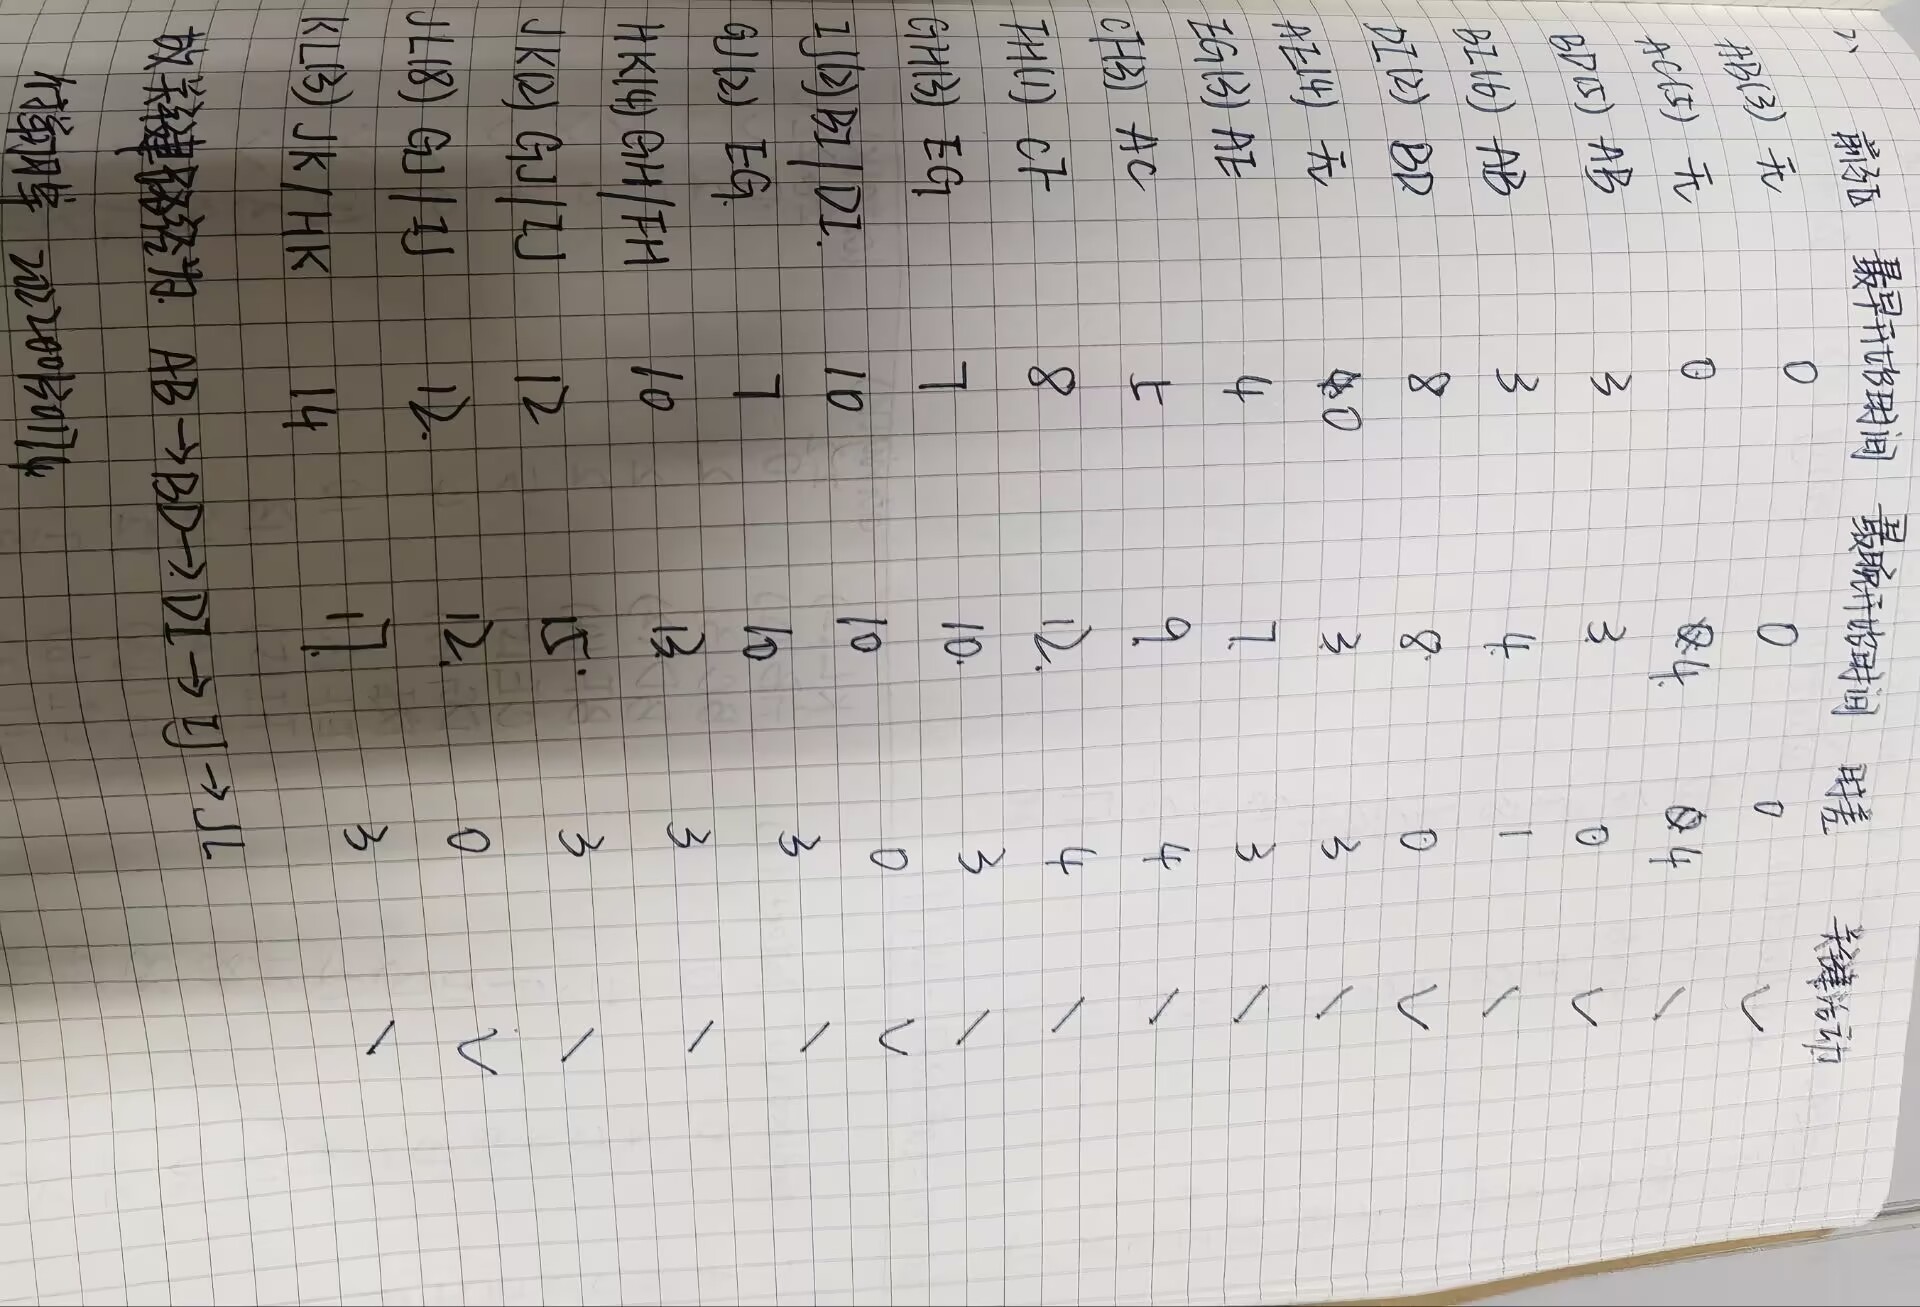 1、 前纪 最早开始时间 最晚开始时间 时差 关键活动
AB(3) 无 0 0 0 ✓
AC(5) 无 0 4 4 \
BD(5) AB 3 3 0 ✓
BI(6) AB 3 4 1 \
DI(2) BD 8 8 0 ✓
AE(4) 无 0 3 3 \
EG(3) AE 4 7 3 \
CF(3) AC 5 9 4 \
FH(1) CF 8 12 4 \
GH(3) EG 7 10 3 \
IJ(2) BI/DI 10 10 0 ✓
GJ(2) EG 7 10 3 \
HK(4) GH/FH 10 13 3 \
JK(2) GJ/IJ 12 15 3 \
JL(8) GJ/IJ 12 12 0 ✓
KL(3) JK/HK 14 17 3 \
故关键路径为 AB→BD→DI→IJ→JL